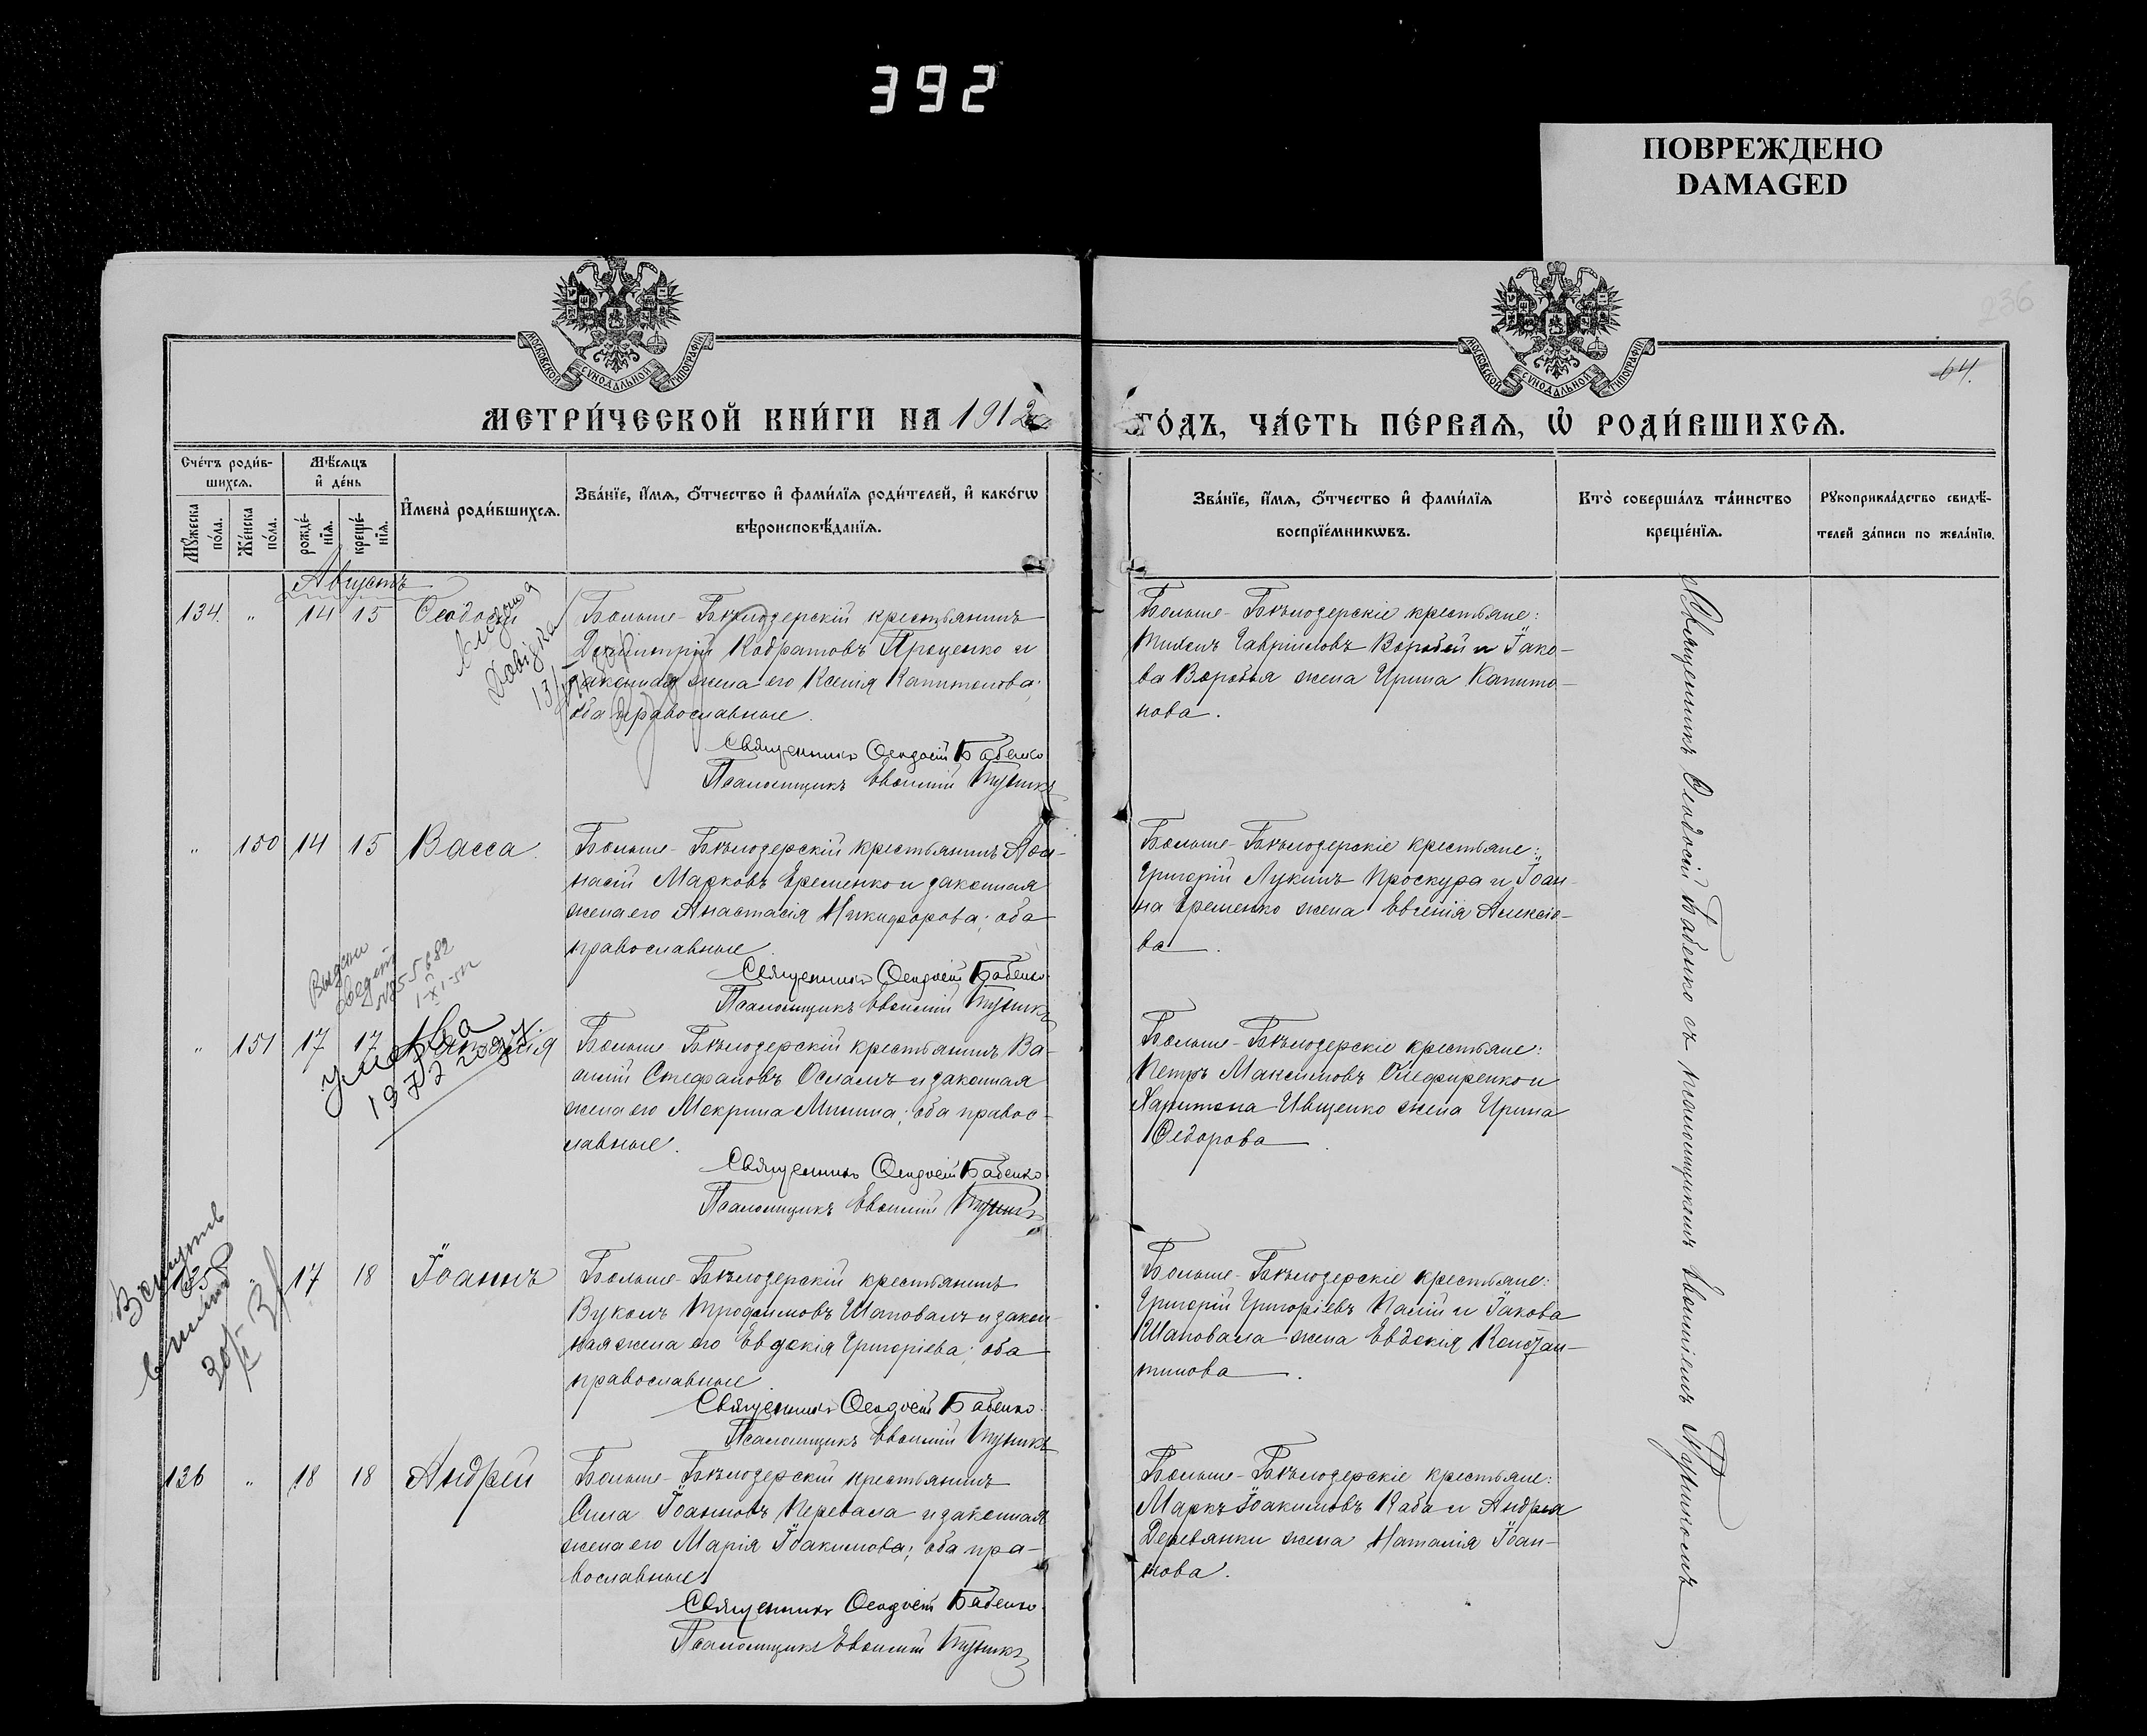 392
ПОВРЕЖДЕНО
DAMAGED
236
64.
МОСКОВСКОЙ СѴНОДАЛЬНОЙ ТИПОГРАФІИ
МОСКОВСКОЙ СѴНОДАЛЬНОЙ ТИПОГРАФІИ
МЕТРИ́ЧЕСКОЙ КНИ́ГИ НА 1912
ГО́ДЪ, ЧА́СТЬ ПЕ́РВАѦ, Ѡ҆ РОДИ́ВШИХСѦ.
Сче́тъ роди́в-
шихсѧ.
Мѣ́сѧцъ
и҆ де́нь
Мꙋ́жеска по́ла.
Же́нска по́ла.
рожде́-
нїѧ.
креще́-
нїѧ.
И҆мена̀ роди́вшихсѧ.
Зва́нїе, и҆́мѧ, ѻ҆́тчество и҆ фами́лїѧ роди́телей, и҆ како́гѡ
вѣроисповѣ́данїѧ.
Зва́нїе, и҆́мѧ, ѻ҆́тчество и҆ фами́лїѧ
воспрїе́мникѡвъ.
Кто̀ соверша́лъ та́инство
креще́нїѧ.
Рꙋкоприкла́дство свидѣ́-
телей за́писи по жела́нїю.
Августъ
134. " 14 15 Ѳеодосій
Больше-Бѣлозерскій крестьянинъ
Димитрій Кодратовъ Проценко и
законная жена его Ксенія Капитонова;
оба православные.
Священникъ Ѳеодосій Бабенко
Псаломщикъ Евѳимій
Больше-Бѣлозерскіе крестьяне:
Тихонъ Гавріиловъ Воробей и Іако-
ва Воробья жена Ирина Капито-
нова.
" 150 14 15 Васса.
Больше-Бѣлозерскій крестьянинъ Аѳа-
насій Марковъ Еременко и законная
жена его Анастасія Никифорова; оба
православные.
Священникъ Ѳеодосій Бабенко.
Псаломщикъ Евѳимій
Больше-Бѣлозерскіе крестьяне:
Григорій Лукинъ Проскура и Іоан-
на Еременко жена Евгенія Алексіе-
ва.
Выдано
1-XI-
" 151 17 17
умерла
1972
Больше-Бѣлозерскій крестьянинъ Ва-
силій Стефановъ Осламъ и законная
жена его Мокрина Минина; оба правос-
лавные.
Священникъ Ѳеодосій Бабенко.
Псаломщикъ Евѳимій
Больше-Бѣлозерскіе крестьяне:
Петръ Максимовъ Олефиренко и
Харитона Ивщенко жена Ирина
Ѳедорова.
17 18 Іоаннъ
Больше-Бѣлозерскій крестьянинъ
Вуколъ Трофимовъ Шаповалъ и закон-
ная жена его Евдокія Григоріева; оба
православные
Священникъ Ѳеодосій Бабенко.
Псаломщикъ Евѳимій
Больше-Бѣлозерскіе крестьяне:
Григорій Григоріевъ Палій и Іакова
Шаповала жена Евдокія Констан-
тинова.
136 " 18 18 Андрей
Больше-Бѣлозерскій крестьянинъ
Сила Іоанновъ Перевала и законная
жена его Марія Іоакимова; оба пра-
вославные.
Священникъ Ѳеодосій Бабенко.
Псаломщикъ Евѳимій
Больше-Бѣлозерскіе крестьяне:
Маркъ Іоакимовъ Каба и Андрея
Деревянки жена Наталія Іоан-
нова.
Священникъ Ѳеодосій Бабенко съ псаломщикомъ Евѳиміемъ